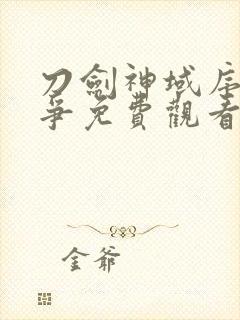 刀劍神域序
爭免費觀看
金爺